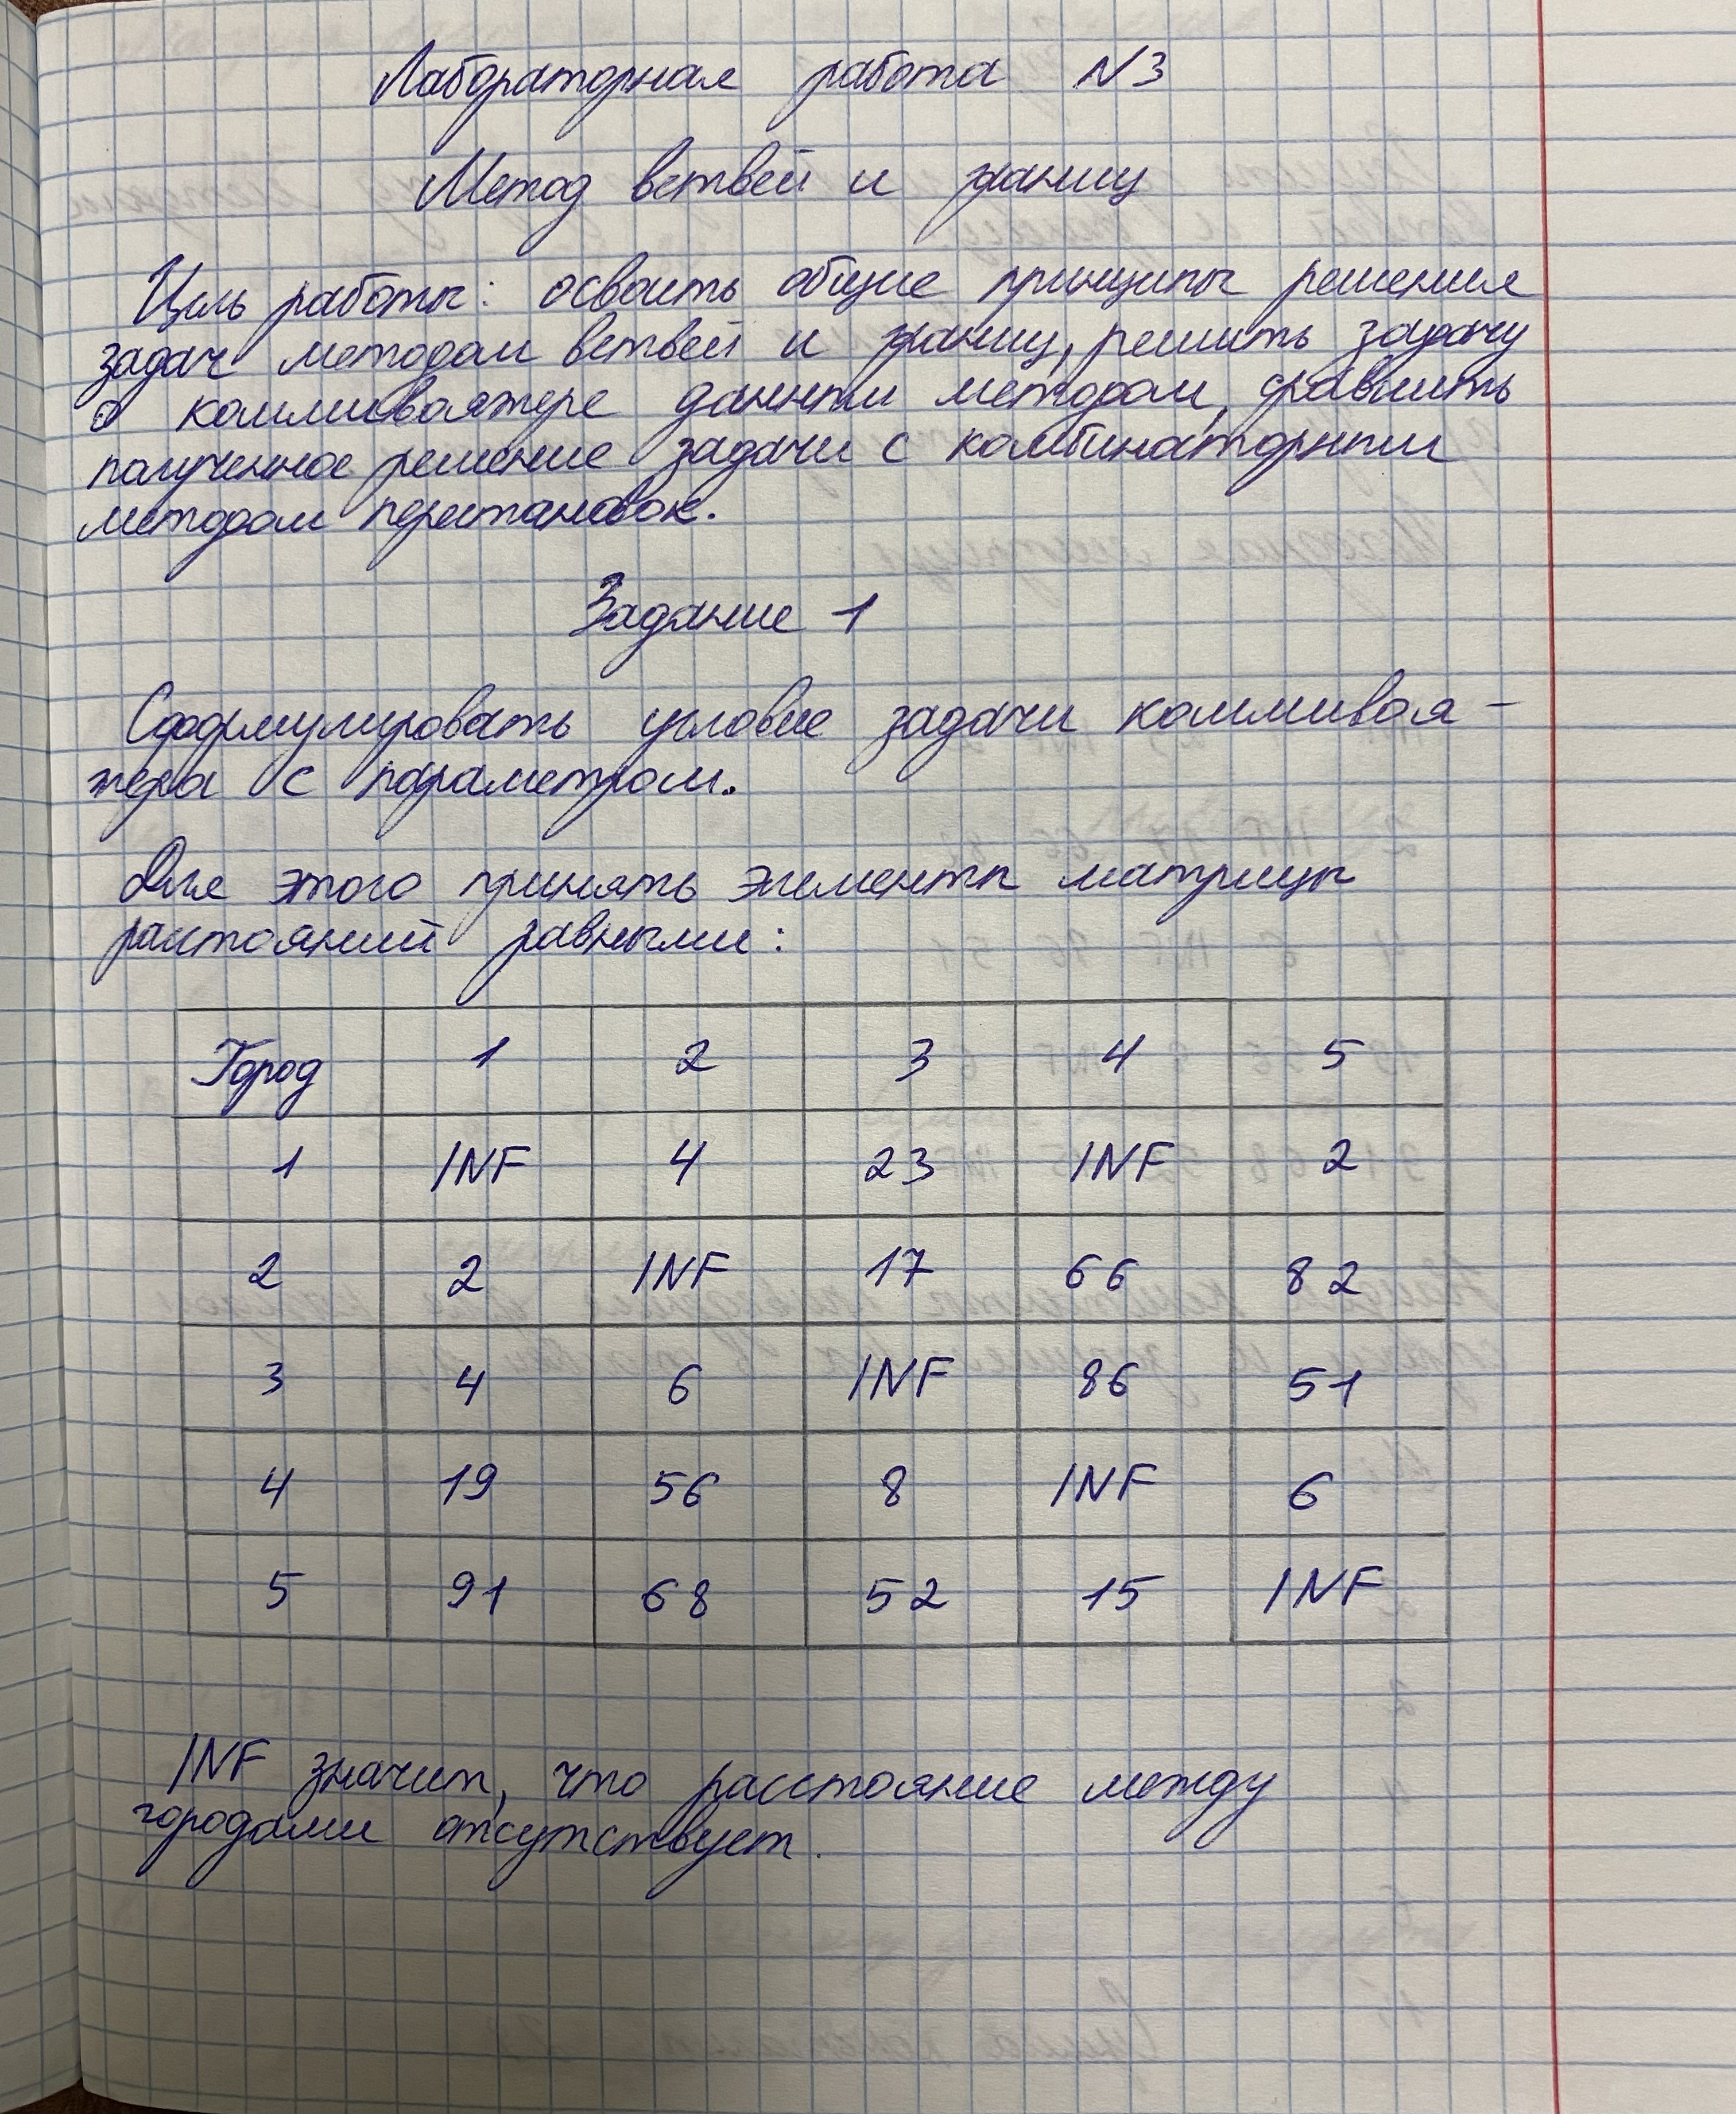 Лабораторная работа N3
Метод ветвей и границ
Цель работы: освоить общие принципы решения
задач методом ветвей и границ, решить задачу
о коммивояжере данным методом, сравнить
полученное решение задачи с комбинаторным
методом перестановок.
Задание 1
Сформулировать условие задачи коммивоя-
жера с параметром.
Для этого принять элементы матрицы
расстояний равными:
Город 1 2 3 4 5
1 INF 4 23 INF 2
2 2 INF 17 66 82
3 4 6 INF 86 51
4 19 56 8 INF 6
5 91 68 52 15 INF
INF значит, что расстояние между
городами отсутствует.